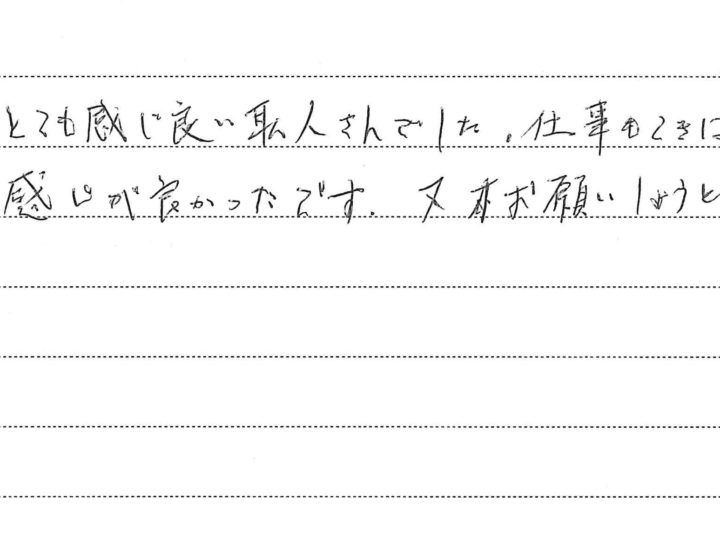 とても感じ良い職人さんでした。仕事も
感じが良かったです。又お願いしようと